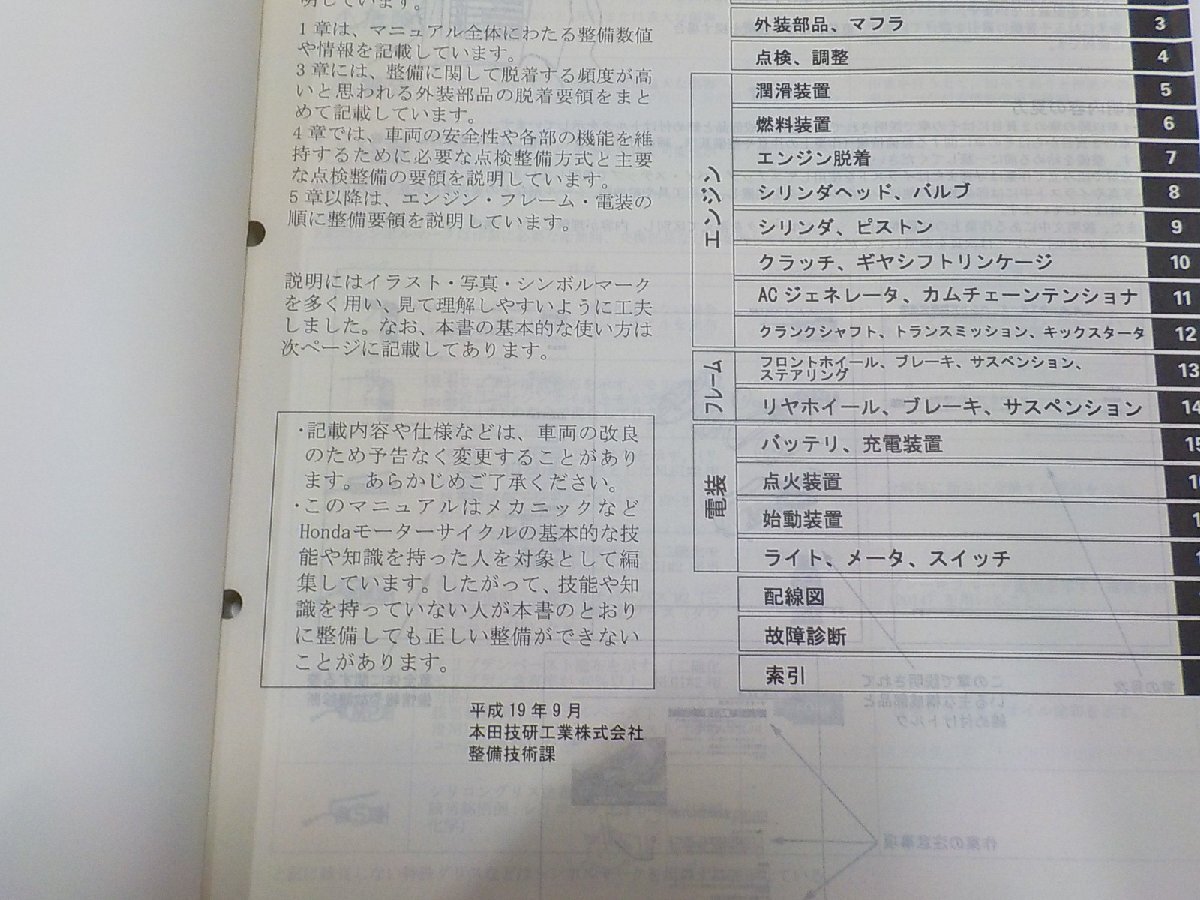 明しています。
1章は、マニュアル全体にわたる整備数値
や情報を記載しています。
3章には、整備に関して脱着する頻度が高
いと思われる外装部品の脱着要領をまと
めて記載しています。
4章では、車両の安全性や各部の機能を維
持するために必要な点検整備方式と主要
な点検整備の要領を説明しています。
5章以降は、エンジン・フレーム・電装の
順に整備要領を説明しています。
説明にはイラスト・写真・シンボルマーク
を多く用い、見て理解しやすいように工夫
しました。なお、本書の基本的な使い方は
次ページに記載してあります。
・記載内容や仕様などは、車両の改良
のため予告なく変更することがあり
ます。あらかじめご了承ください。
・このマニュアルはメカニックなど
Hondaモーターサイクルの基本的な技
能や知識を持った人を対象として編
集しています。したがって、技能や知
識を持っていない人が本書のとおり
に整備しても正しい整備ができない
ことがあります。
平成19年9月
本田技研工業株式会社
整備技術課
外装部品、マフラ 3
点検、調整 4
エンジン
潤滑装置 5
燃料装置 6
エンジン脱着 7
シリンダヘッド、バルブ 8
シリンダ、ピストン 9
クラッチ、ギヤシフトリンケージ 10
ACジェネレータ、カムチェーンテンショナ 11
クランクシャフト、トランスミッション、キックスタータ 12
フレーム
フロントホイール、ブレーキ、サスペンション、
ステアリング 13
リヤホイール、ブレーキ、サスペンション 14
電装
バッテリ、充電装置 15
点火装置
始動装置
ライト、メータ、スイッチ
配線図
故障診断
索引